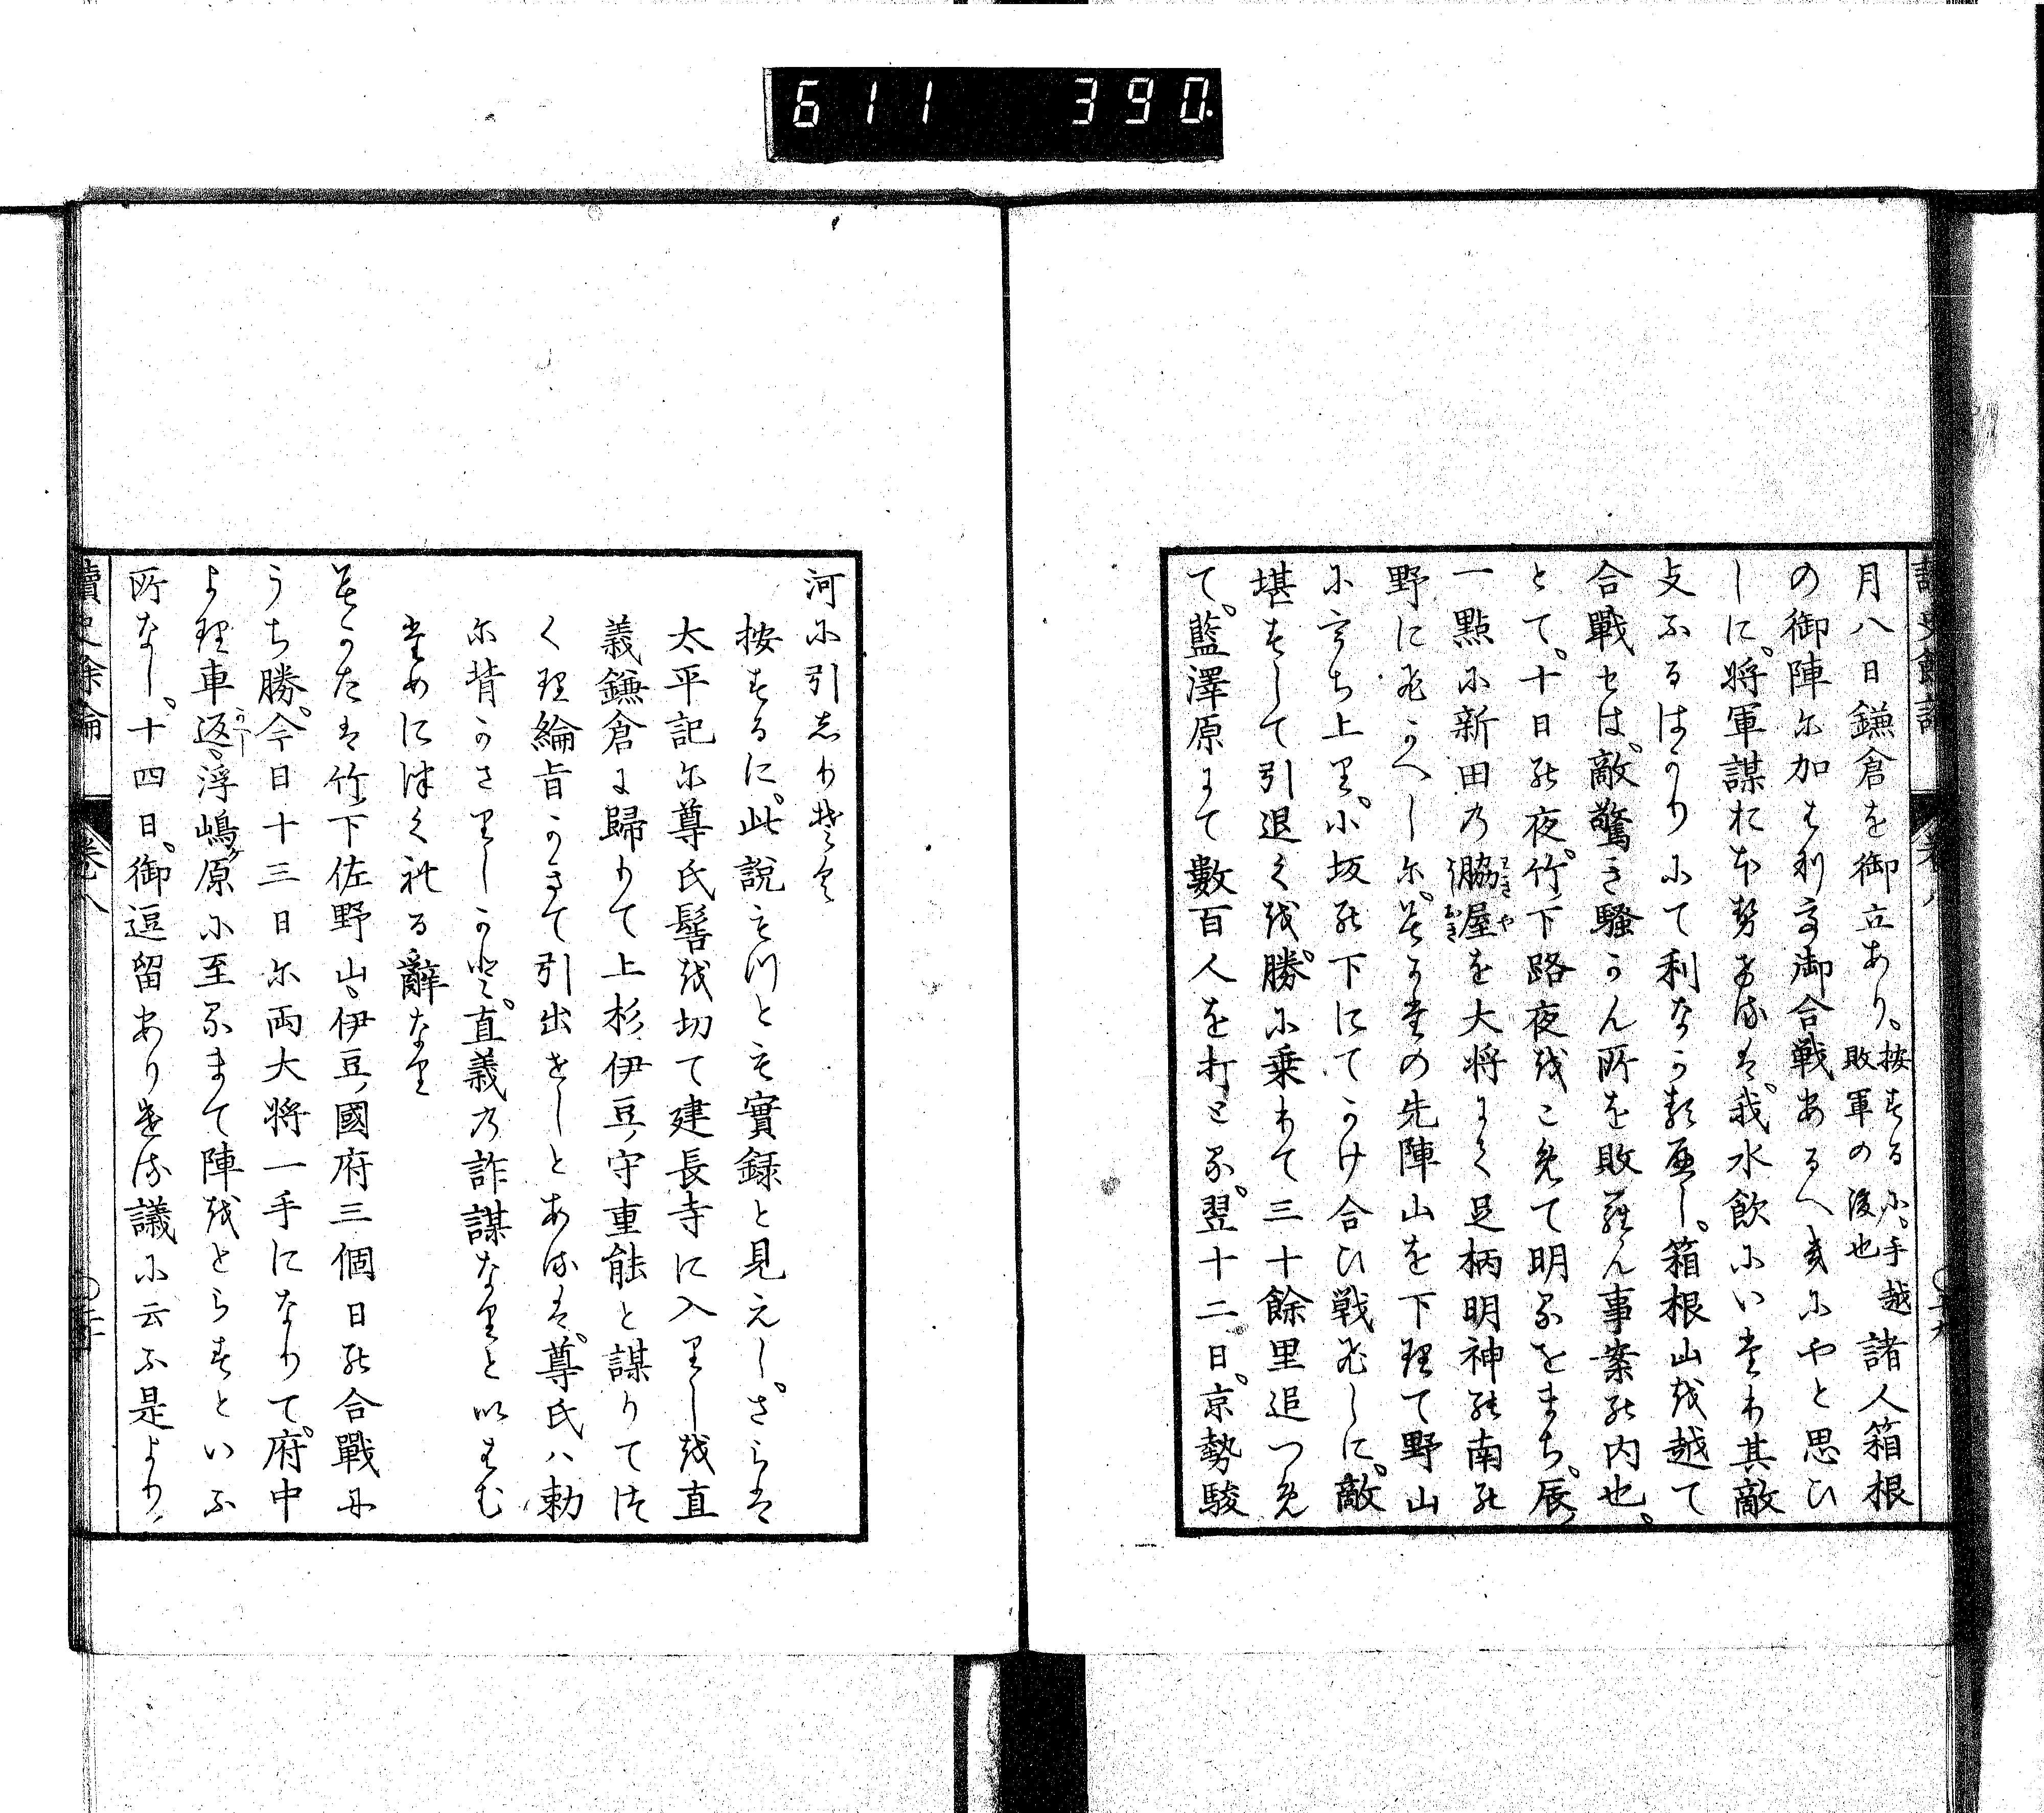 611 390
月八日鎌倉を御立あり。按するに。手越敗軍の後也諸人箱根
の御陣に加はり又御合戦あるへきにやと思ひ
しに。将軍謀におほせあるは。我水飲にいたり其敵
支ふるはかりにて利なかるへし。箱根山を越て
合戰せは。敵驚き騒かん所を敗らん事案の内也。
とて。十日の夜。竹下路夜をこめて明るをまち。辰
一點に新田の脇屋を大将にて足柄明神の南の
野にひかへしに。そかたの先陣山を下りて野山
にうち上り。小坂の下にてかけ合ひ戦ひしに。敵
堪すして引退くを。勝に乗りて三十餘里追つめ
て。藍澤原にて數百人を打とる。翌十二日。京勢駿
河に引しりそく
按するに。此説もつとも實録と見えし。さらは
太平記に尊氏髻を切て建長寺に入りしを直
義鎌倉に歸りて上杉伊豆守重能と謀りてつ
く理綸旨かきて引出せしとあるは。尊氏ハ勅
に背かさりしかと。直義の詐謀なりと以はむ
ためにつくれる辭なり
そかたは竹下佐野山伊豆國府三個日の合戰に
うち勝。今日十三日に両大将一手になりて。府中
より車返浮嶋原に至るまて陣をとらすといふ
所なし。十四日。御逗留ありける議に云ふ是より
讀史餘論 卷八